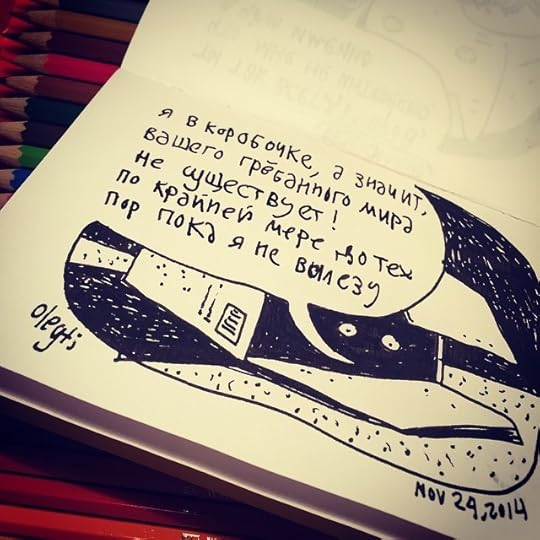 я в коробочке, а значит,
вашего грёбанного мира
не существует!
по крайней мере до тех
пор пока я не вылезу
olegti
NOV 24, 2014